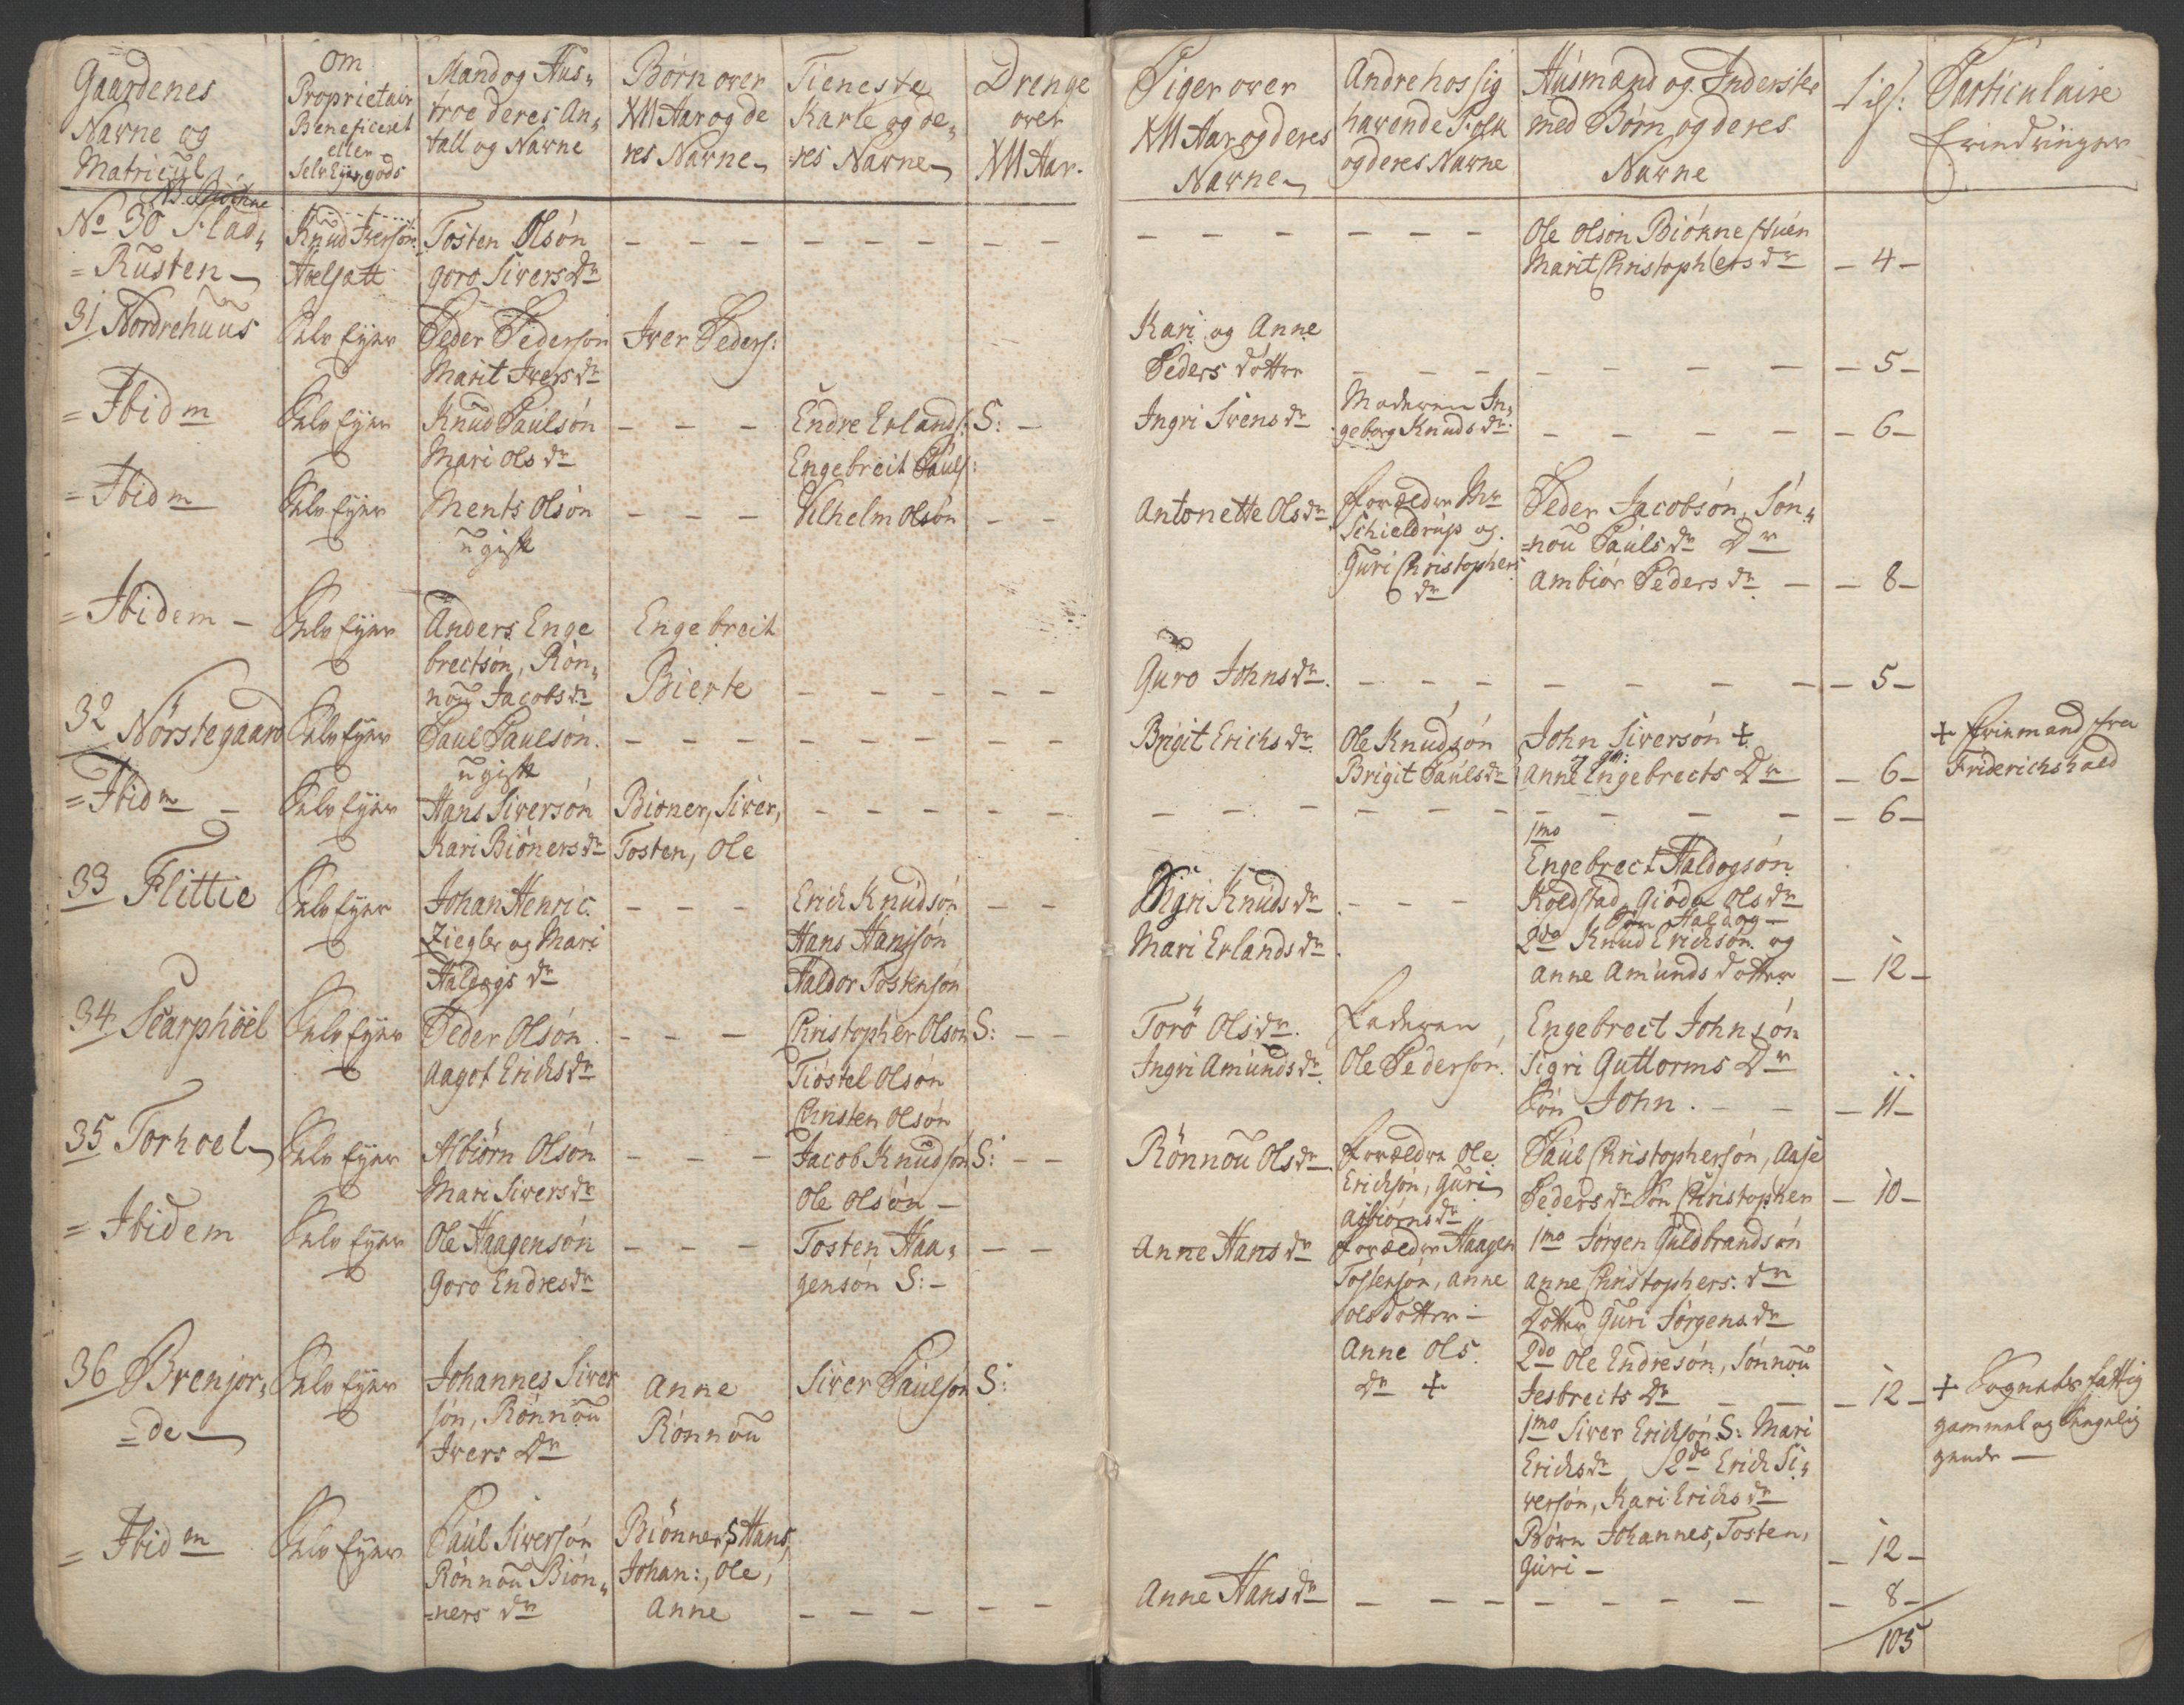 Gaardenes
Navne og
Matricul
Om
Proprietair
Beneficeret
eller
Selv Eyer gods
Mand og Hus„
troe deres An„
tall og Navne
Børn over
XII Aar og de
res Navne
Tieneste
Karle og de„
=res Navne
Drenge
over
XII Aar.
Piger over
XII Aar og deres
Navne
Andre hos sig
havende Folk
og deres Navne
Husmænd og Inderster
med Børn og deres
Navne
Particulaire
Erindringer
No 30 Flad„
=Rusten
Knud Iversøn
Tosten Olsøn
goro Sivers Dr
Ole Olsøn Biøkne stuen
Marit Christophers dr
– 4 –
31 Nordrehuus
Selv Eyer
Peder Pedersøn
Marit Ivers dr
Iver Peders:
Kari og Anne
Peders døttre
– 5 –
= Ibidm
Selv Eyer
Knud Paulsøn
Mari Ols dr
Endre Erlands: S: –
Engebreit Pauls:
Ingri Svens dr
Moderen In„
geborg Knuds dr.
– 6 –
= Ibidm
Selv Eyer
Ments Olsøn
ugift
Vilhelm Olsøn
Antonette Ols dr
forældre Mr
Schieldrup og
Guri Christophers
dr
Peder Jacobsøn, Søn„
=nou Pauls dr Dr
Ambiør Peders dr –
– 8 –
= Ibidem –
Selv Eyer
Anders Enge
brectsøn, Røn„
nou Jacobs dr
Engebreit
Bierte
Guro Johns dr.
– 5 –
32 Nørstegaard
Selv Eyer
Paul Paulsøn.
ugift
Brigit Erichs dr
Ole Knudsøn
Brigit Pauls dr
John Siversøn +
Anne Engebrects Dr
– 6 –
+ friemand fra
Friderichshald
= Ibidm –
Selv Eyer
Hans Siversøn
Kari Biøners dr
Bioner, Siver,
Tosten, Ole
– 6 –
33 Flittie
Selv Eyer
Johan Henric
Ziegler og Mari
Haldogs dr
Erich Knudsøn
Hans Hansøn
Haldor Tostensøn
Sigri Knuds dr
Mari Erlands dr
1mo
Engebrect Haldogsøn
Koldstad, Giøda Ols dr
Søn Haldog –
2do Knud Erichsøn og
Anne Amunds dotter
– 12 –
34 Scarphøel
Selv Eyer
Peder Olsøn
Aagot Erichs dr
Christopher Olsøn S: –
Tiøstel Olsøn
Christen Olsøn
Torø Ols dr.
Ingri Amunds dr
Faderen
Ole Pedersøn.
Engebrect Johnsøn
Sigri Guttorms Dr
Søn John.
– 11 –
35 Torhoel
Selv Eyer
Asbiørn Olsøn
Mari Sivers dr
Jacob Knudsøn S: –
Ole Olsøn –
Rønnou Ols dr
forældre Ole
Erichsøn, Guri
Asbiørns dr
Paul Christophersøn, Aase
Peders dr Søn Christopher
– 10 –
= Ibidem
Selv Eyer
Ole Haagensøn
Goro Endres dr
Tosten Haa„
gensøn S: –
Anne Hans dr
forældre Haagen
Tostensøn, Anne
Olsdotter –
Anne Ols
dr +
1mo Jørgen Guldbrandsøn
Anne Christophers: dr
Dotter Guri Jørgens dr
2do Ole Endresøn, Sønnou
Jesbreits Dr
– 12 –
+ Sognets fattig
gammel og Sengelig
gende –
36 Brenjor„
=de
Selv Eyer
Johannes Siver
søn, Rønnou
Ivers Dr
Anne
Rønnou
Siver Paulsøn S:
1mo Siver Erichsøn S: Mari
Erichs dr 2do Erich Si„
versøn, Kari Erichs dr
Børn Johannes, Tosten,
Guri –
– 12 –
= Ibidm
Selv Eyer
Paul Siversøn
Rønnou Biøn„
=ners dr
Biønner, S Hans,
Johan:, Ole,
Anne
Anne Hans dr
– 8 –
105